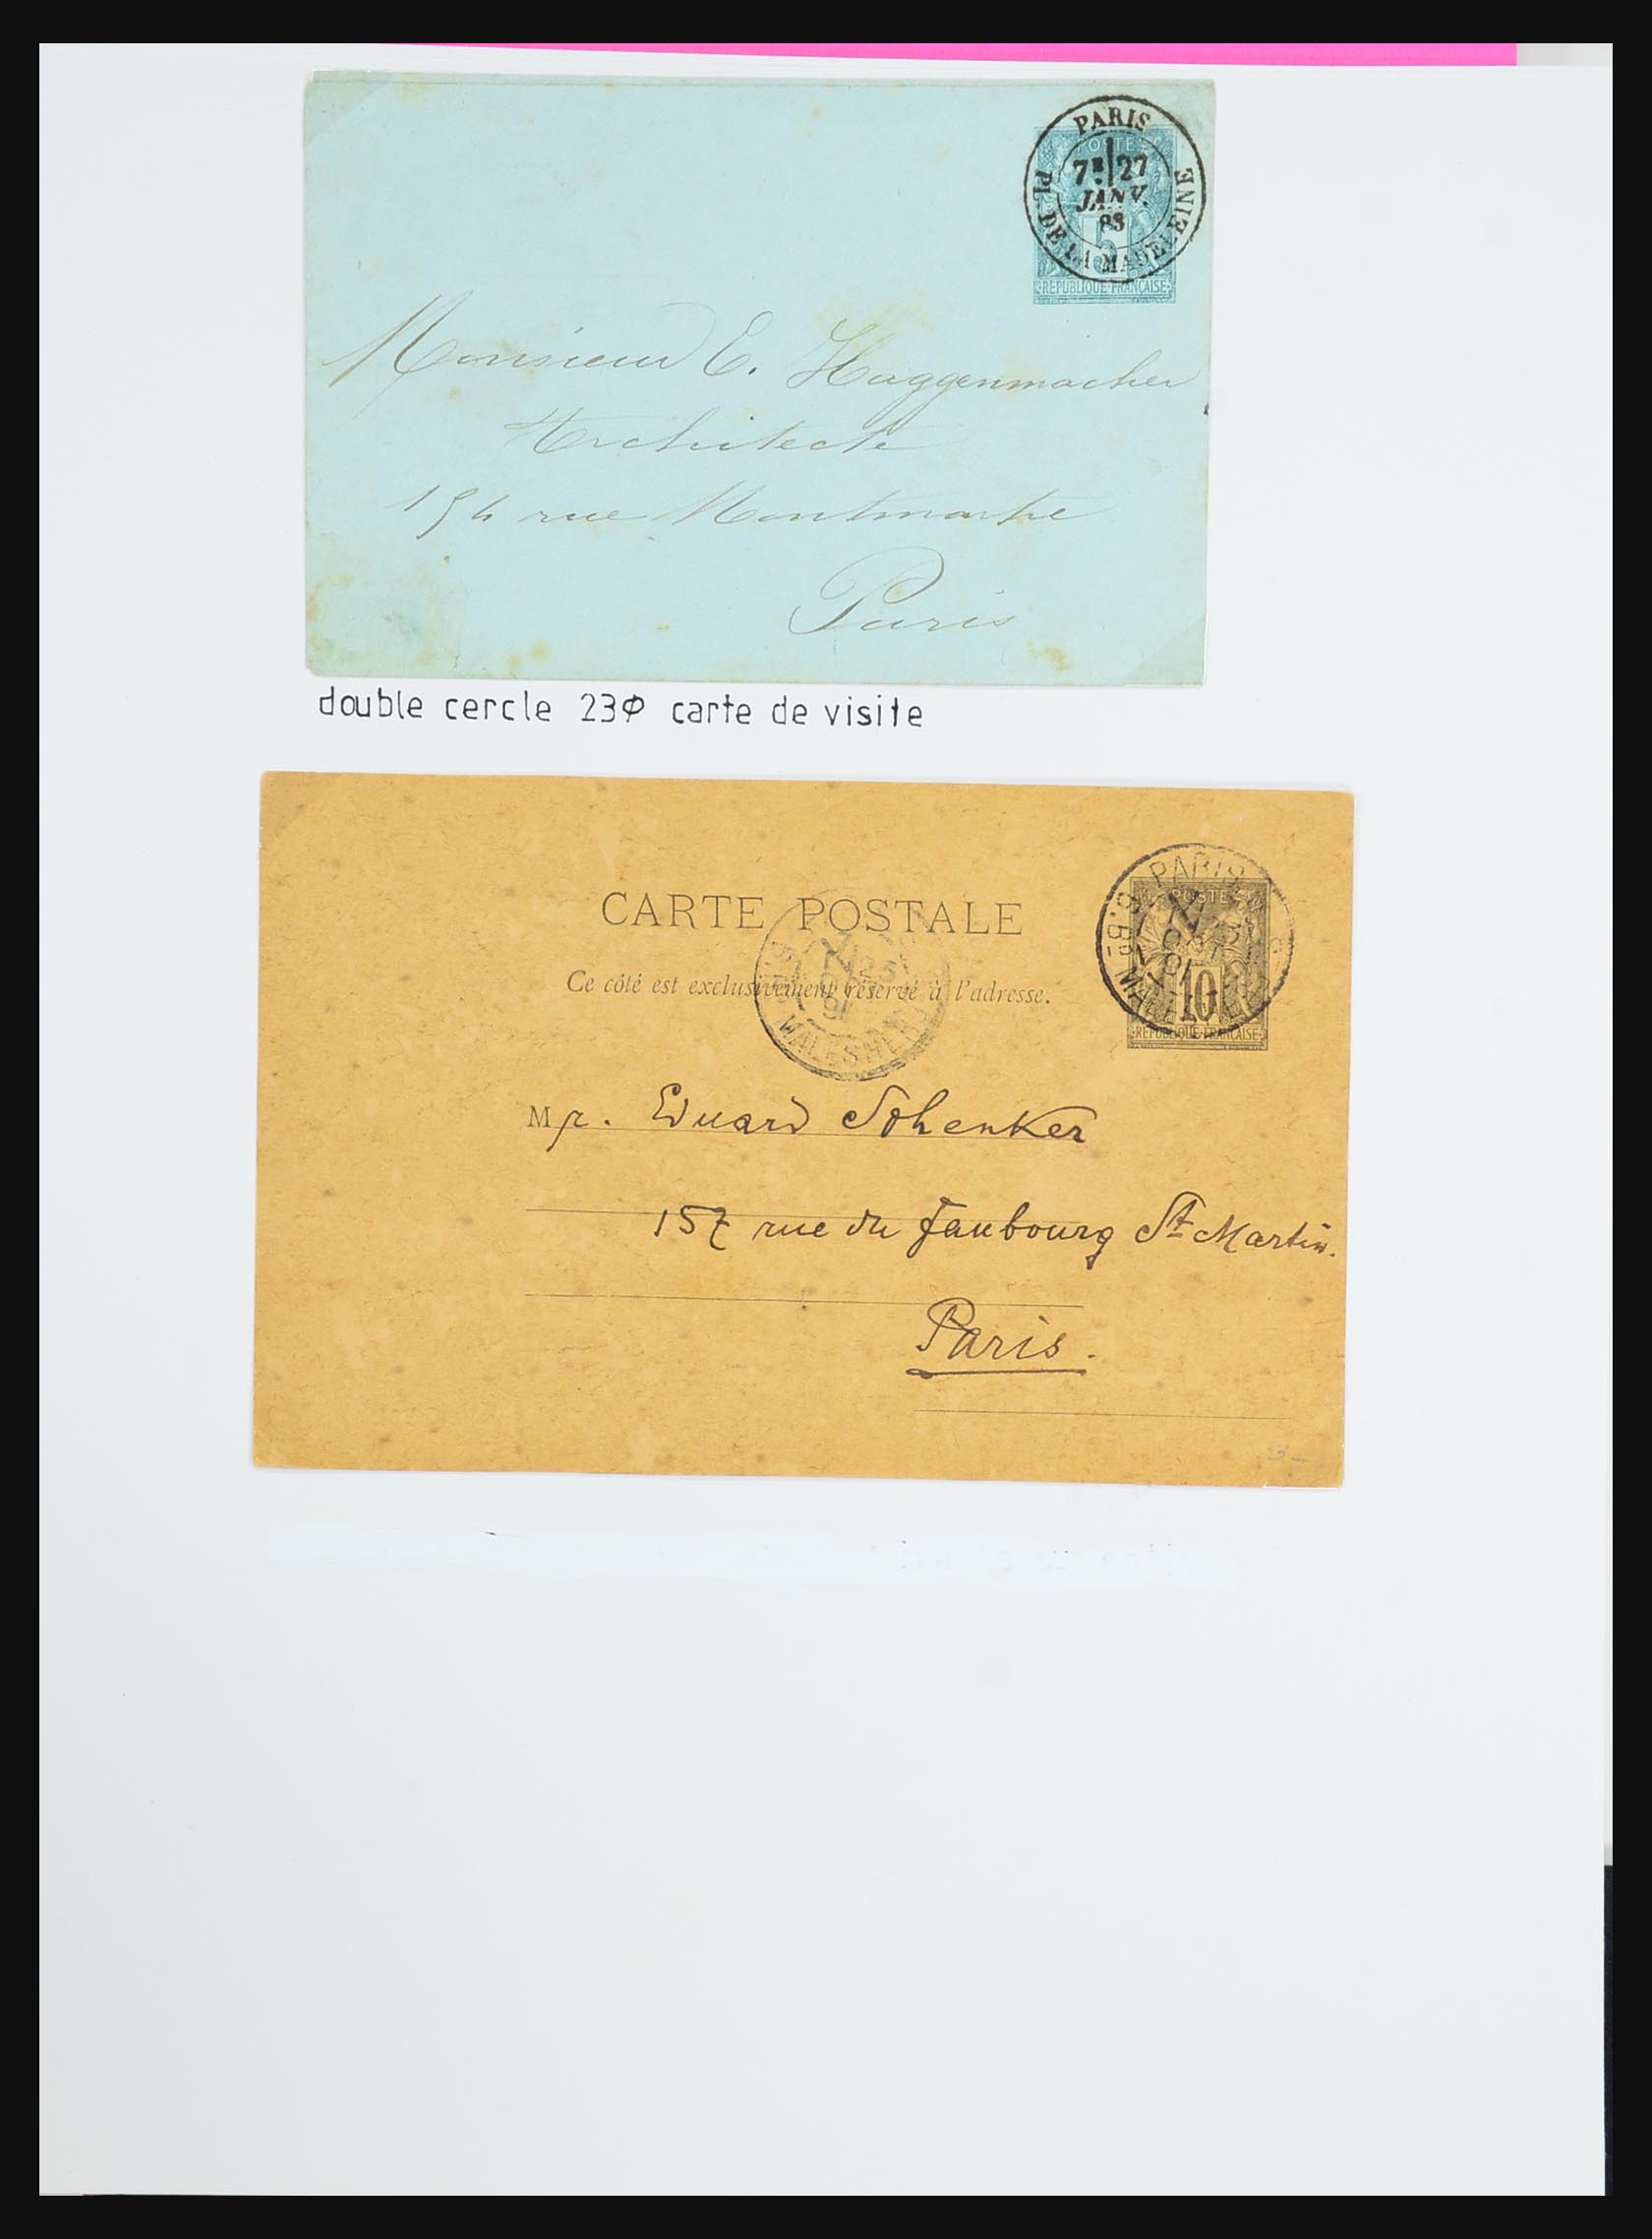 PARIS
POSTES
7E 27
JANV.
83
PL. DE LA MADELEINE
5
REPUBLIQUE FRANCAISE
Monsieur E. Haggenmacher
Architecte
154 rue Montmartre
Paris
double cercle 23Φ carte de visite
PARIS
POSTES
10
REPUBLIQUE FRANCAISE
CARTE POSTALE
25
91
MALESHERBES
Ce côté est exclusivement réservé à l'adresse.
Mr. Eduard Schenker
157 rue du Faubourg St Martin.
Paris.